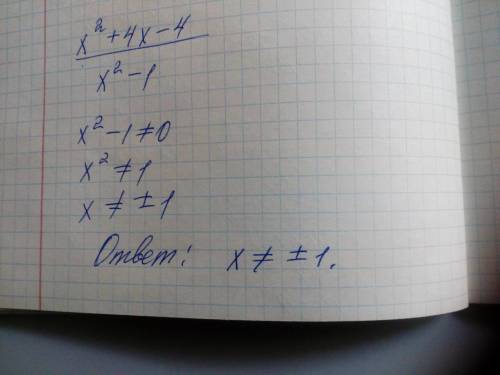 x² + 4x - 4
x² - 1
x² - 1 ≠ 0
x² ≠ 1
x ≠ ± 1
Ответ: x ≠ ± 1.